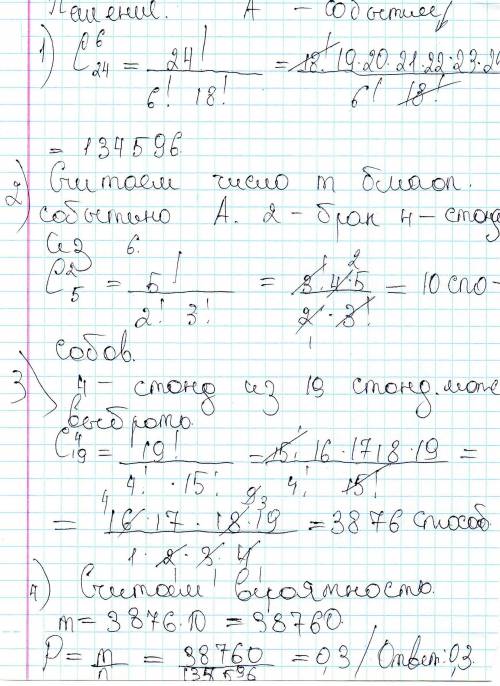 Решение. А – событие
1) C⁶₂₄ = 24! / (6! 18!) = 18! 19·20·21·22·23·24 / (6! 18!)
= 134596
2) Считаем число m благоп.
событию А. 2 – брак 4 – станд
из 6.
C²₅ = 5! / (2! 3!) = 3! 4·5 / (2·3!) = 10 спо-
собов.
3) 4 – станд из 19 станд. може
выбрать.
C⁴₁₉ = 19! / (4! · 15!) = 15! 16·17·18·19 / (4! 15!) =
= 16·17·18·19 / (1·2·3·4) = 3876 способ
4) Считаем вероятность.
m = 3876·10 = 38760
P = m/n = 38760 / 134596 = 0,3 / Ответ: 0,3.